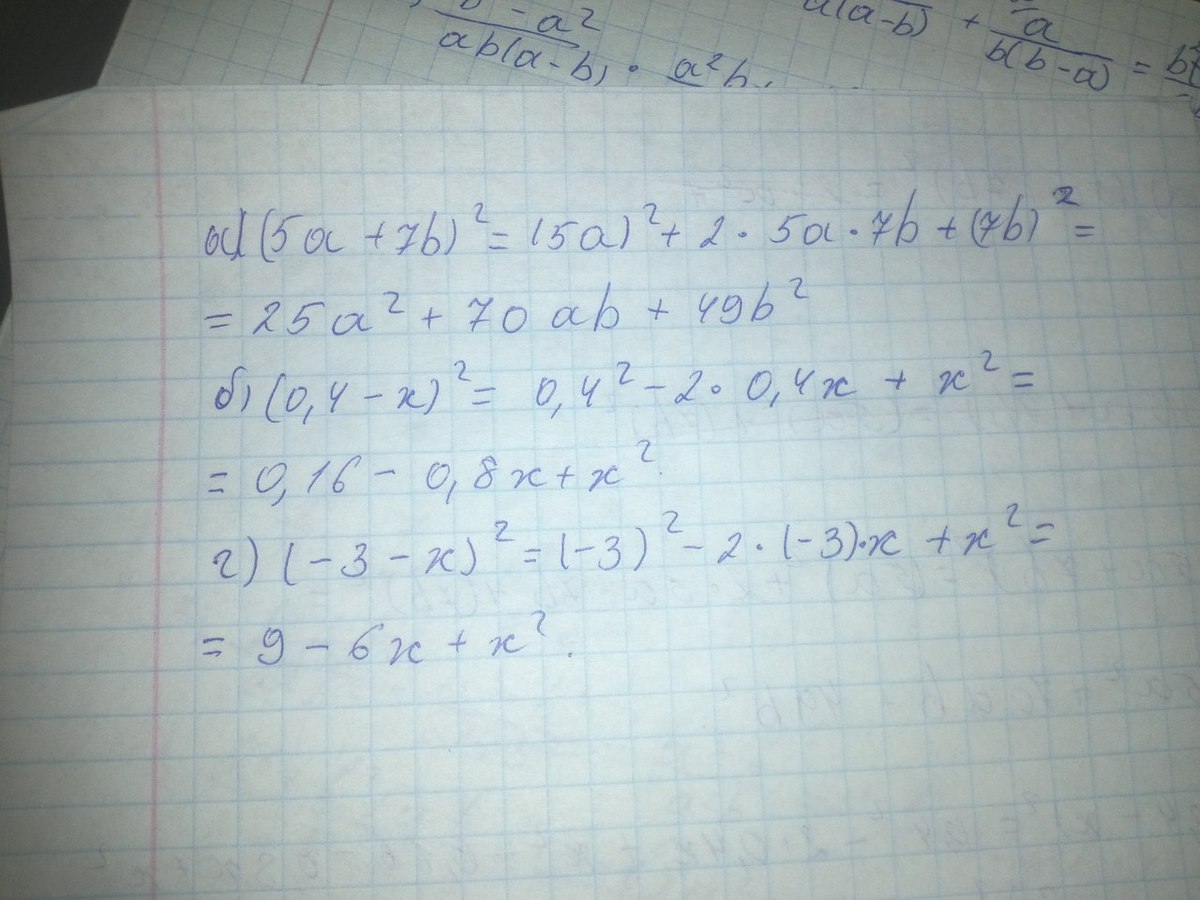 - a²
ab(a-b) · a²b
a(a-b) + a
b(b-a) =
а) (5a + 7b)² = (5a)² + 2 · 5a · 7b + (7b)² =
= 25a² + 70 ab + 49b²
б) (0,4 - x)² = 0,4² - 2 · 0,4x + x² =
= 0,16 - 0,8x + x².
г) (-3 - x)² = (-3)² - 2 · (-3)·x + x² =
= 9 - 6x + x².